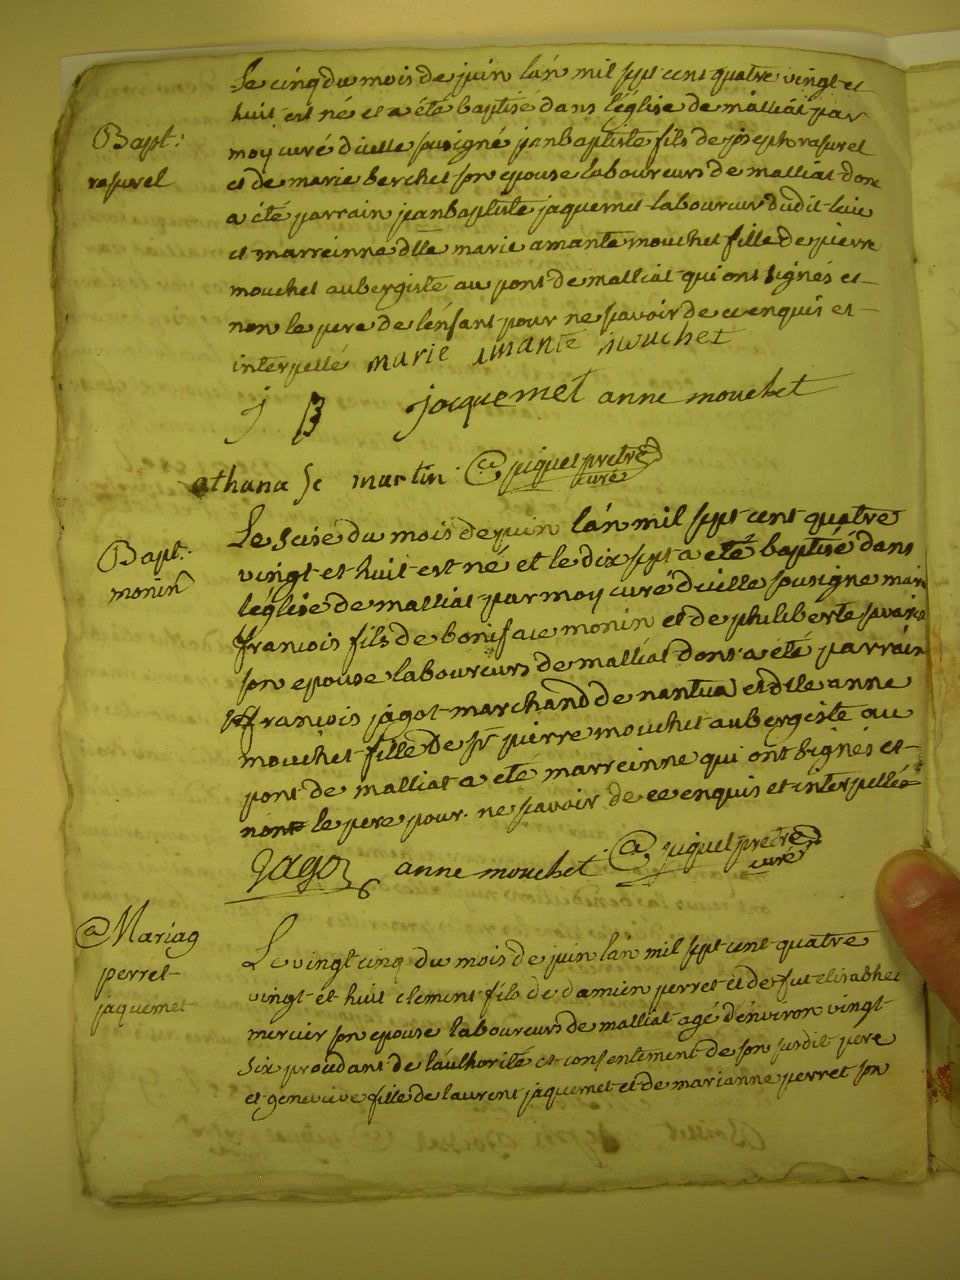 Le cinq du mois de juin l'an mil sept cent quatre vingt et
huit est né et a été baptisé dans l'église de malliat par
Bapt:
rasurel
moy curé d'icelle susigné jeanbaptiste fils de joseph rasurel
et de marie berchet son epouse laboureurs de malliat dont
a été parrain jeanbaptiste jaquemet laboureur dudit lieu
et marreinne dlle marie amante mouchet fille de pierre
mouchet aubergiste au pont de malliat qui ont signés et
non le pere de l'enfant pour ne savoir de ce enquis et
interpellé marie amante mouchet
j B jacquemet anne mouchet
athana se martin piquet pretre
curé
Bapt:
monin
Le seise du mois de juin l'an mil sept cent quatre
vingt et huit est né et le dix sept a eté baptisé dans
l'église de malliat par moy curé d'icelle sousigne
francois fils de boniface monin et de philiberte
son epouse laboureurs de malliat dont a été parrain
sr francois jagot marchand de nantua et dlle anne
mouchet fille de sr pierre mouchet aubergiste au
pont de malliat a eté marreinne qui ont signés et
non le pere pour ne savoir de ce enquis et interpellé
Jagot anne mouchet piquet pretre
curé
Mariag
perret
jaquemet
Le vingt cinq du mois de juin l'an mil sept cent quatre
vingt et huit clement fils de damien perret et de fut elisabhet
mercier son epouse laboureurs de malliat agé d'environ vingt
six procedant de l'authorité et consentement de son susdit pere
et genevieve fille de laurent jaquemet et de marianne perret son